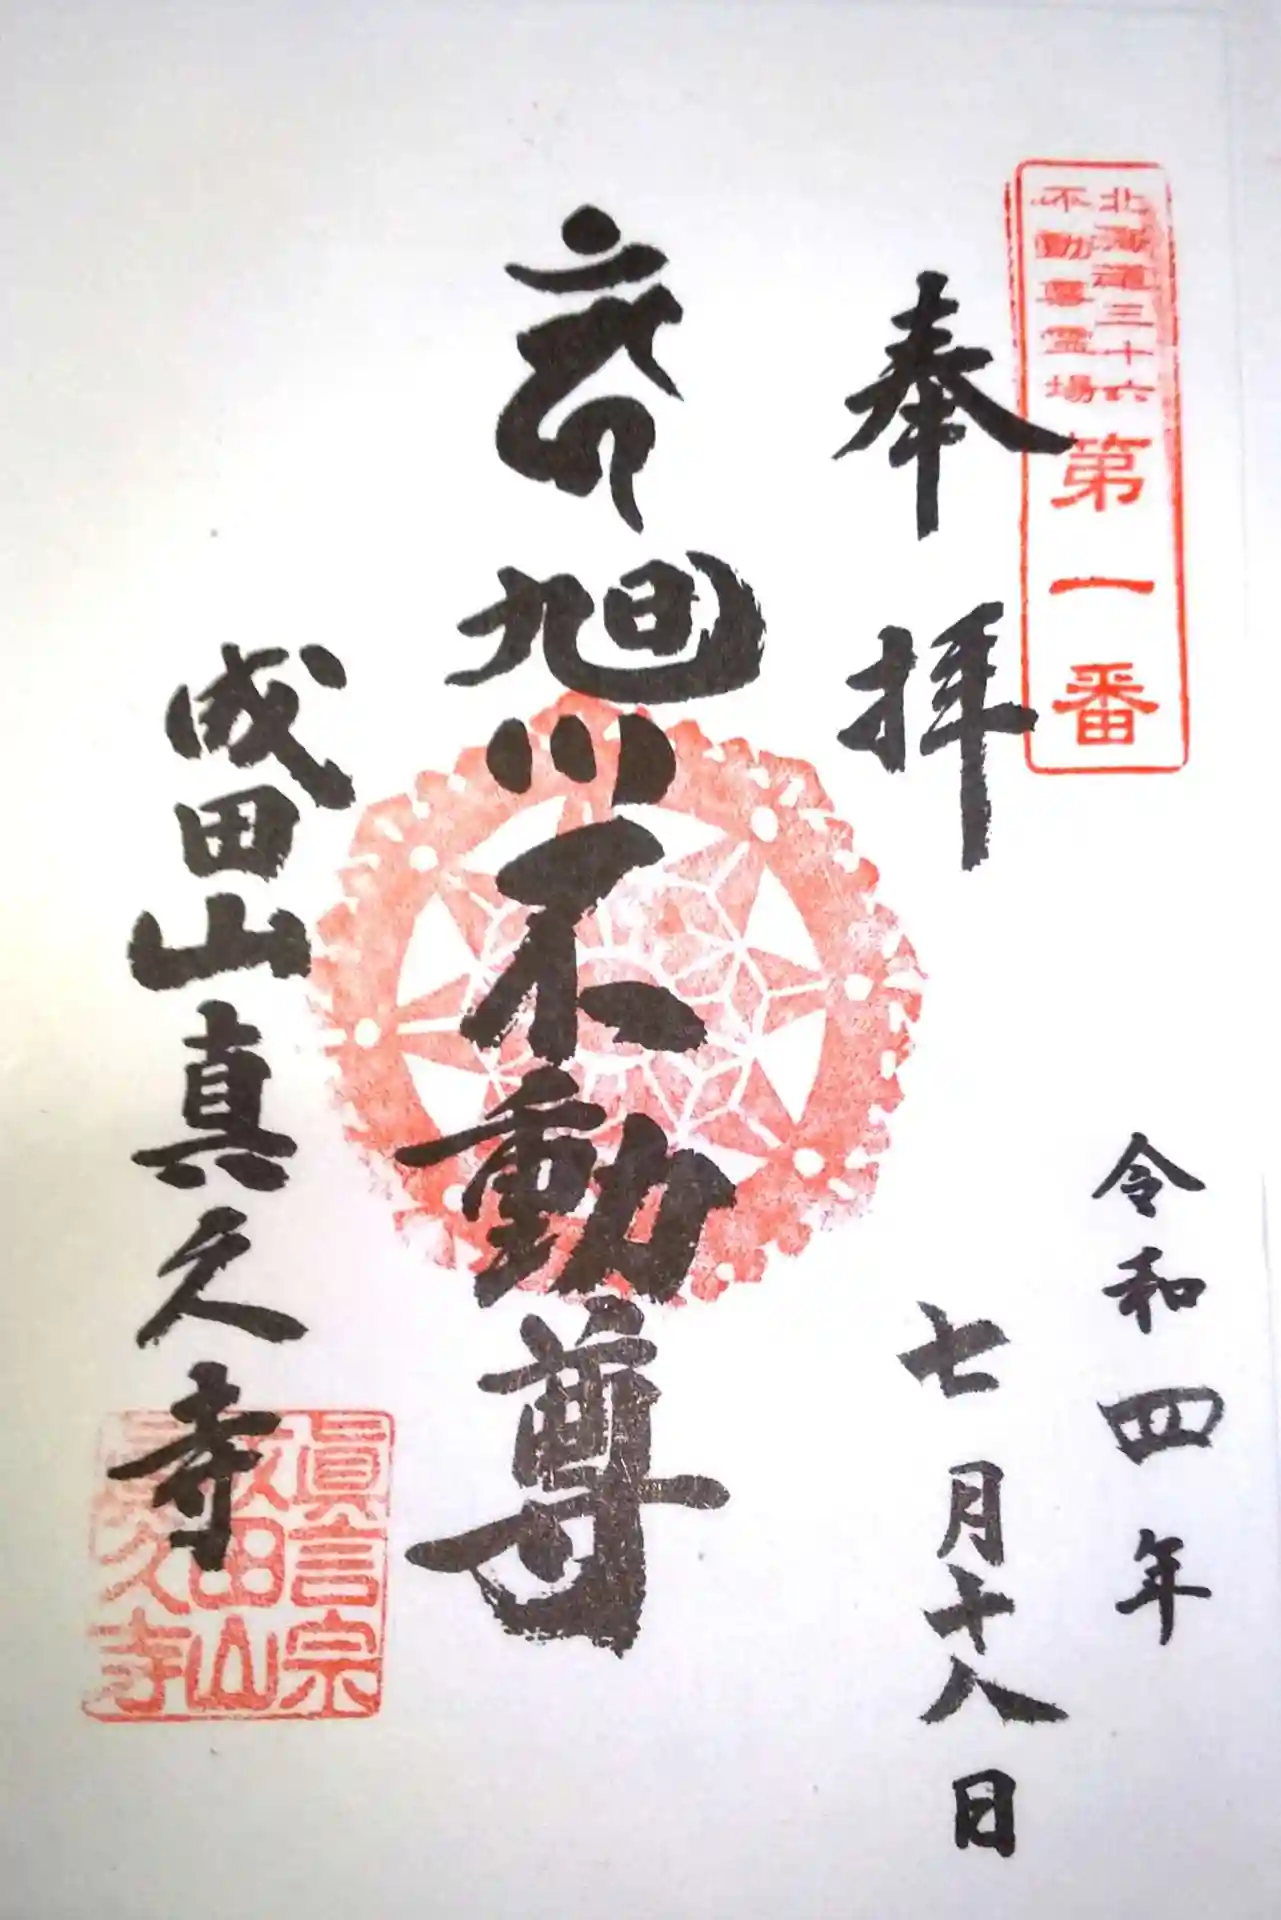 北海道三十六
不動尊霊場
第一番
奉拝
令和四年
七月十八日
旭川不動尊
成田山真久寺
眞言宗
成田山
眞久寺